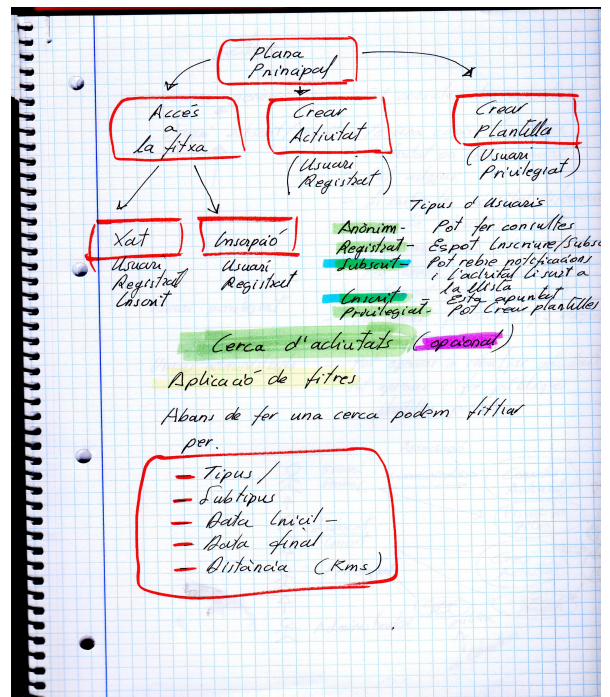 Plana
Principal
Accés
a
la fitxa
Crear
Activitat
(Usuari
Registrat)
Crear
Plantilla
(Usuari
Privilegiat)
Xat
Usuari
Registrat
Inscrit
Inscripció
Usuari
Registrat
Tipus d'Usuaris
Anònim - Pot fer consultes
Registrat - Es pot Inscriure/Subsc
Subscrit - Pot rebre notificacions
i l'activitat li surt a
la llista
Inscrit Esta apuntat
Privilegiat - Pot Crear plantilles
Cerca d'activitats (opcional)
Aplicació de filtres
Abans de fer una cerca podem filtrar
per.
- Tipus /
- Subtipus
- Data Inicil -
- Data final
- Distància (Kms)